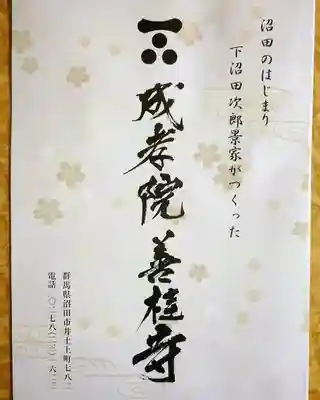 沼田のはじまり
下沼田次郎景家がつくった
成孝院 善桂寺
群馬県沼田市井土上町七八二
電話 〇二七八(二三)一六二三